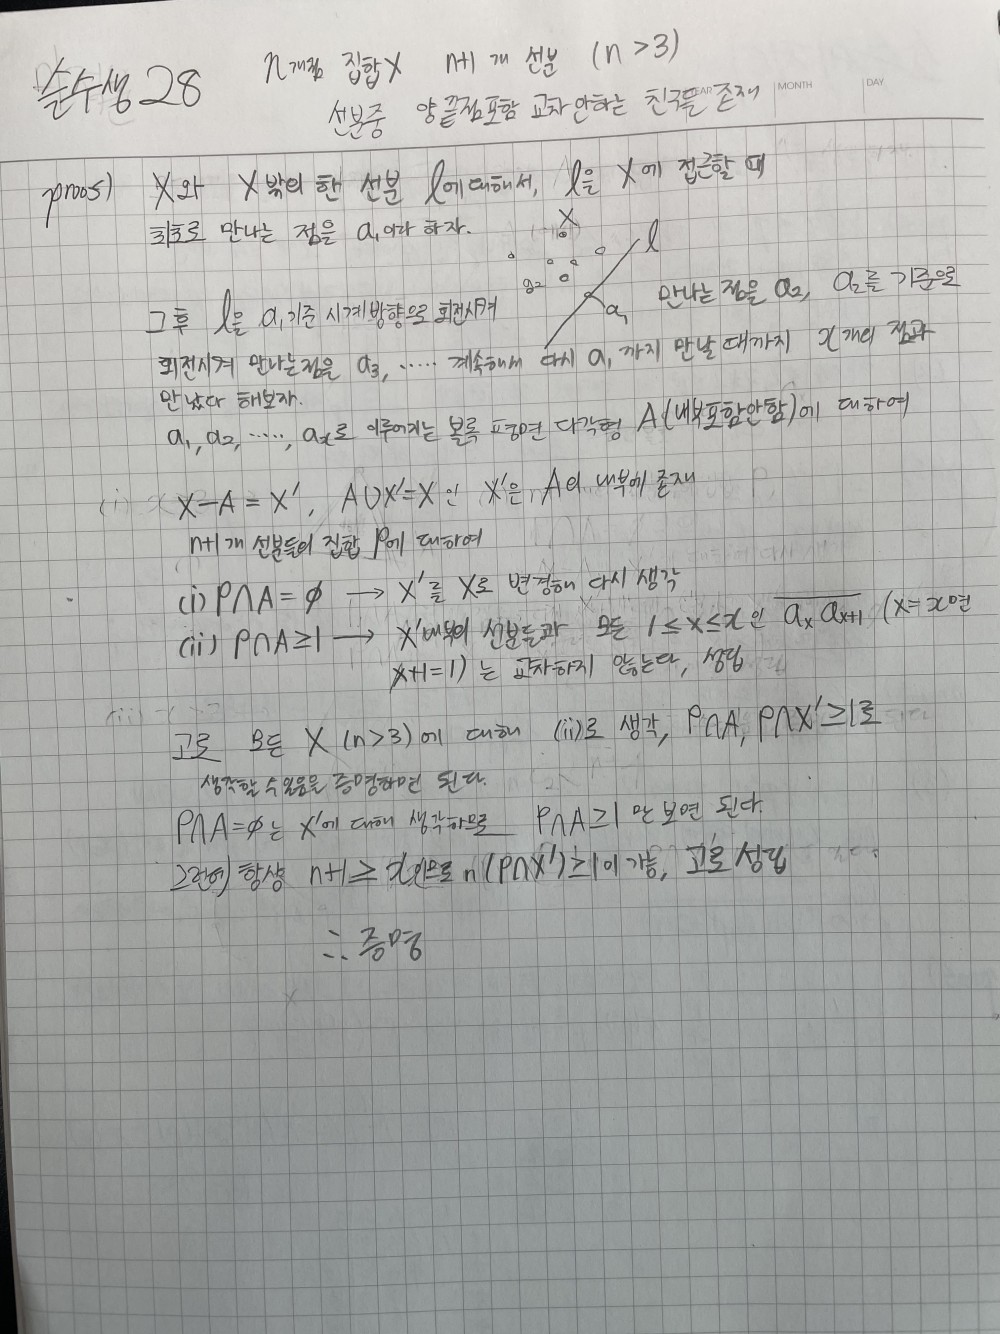 순수생 28
n개점 집합 X n+1개 선분 (n>3)
선분중 양 끝점포함 교차 안하는 친구들 존재
MONTH DAY
proof) X와 X 밖의 한 선분 l에 대해서, l을 X에 접근할 때
최초로 만나는 점을 a₁이다 하자.
X
l
a₂
a₁
그 후 l을 a₁ 기준 시계방향으로 회전시켜 만나는 점을 a₂, a₂를 기준으로
회전시켜 만나는점을 a₃, ····· 계속해서 다시 a₁ 까지 만날 때까지 x개의 점과
만났다 해보자.
a₁, a₂, ·····, aₓ로 이루어지는 볼록 평면 다각형 A(내부포함안함)에 대하여
X-A = X', A∪X'=X 인 X'은 A의 내부에 존재
n+1개 선분들의 집합 P에 대하여
(i) P∩A = ∅ → X'를 X로 변경해 다시 생각
(ii) P∩A≥1 → X'내부의 선분들과 모든 1≤x≤x인 aₓaₓ₊₁ (x=x면
x+1=1)는 교차하지 않는다, 성립
고로 모든 X (n>3)에 대해 (ii)로 생각, P∩A, P∩X'≥1로
생각할 수 있음을 증명하면 된다.
P∩A=∅는 X'에 대해 생각하므로 P∩A≥1 만 보면 된다.
그런데 항상 n+1≥x이므로 n(P∩X')≥1이 가능, 고로 성립
∴ 증명